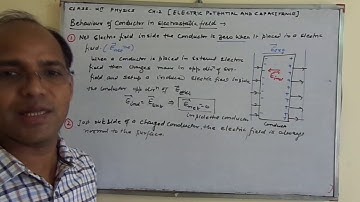 CLASS-XII PHYSICS CH-2 [ELECTRIC POTENTIAL AND CAPACITANCE]
Behaviour of Conductor in Electrostatic field →
① Net Electric field inside the Conductor is Zero when it placed in a Electric
field. (E net = 0)
When a conductor is placed in external Electric
field then charges move in opp dirⁿ of
field and setup a induce Electric field inside
the conductor opp dirⁿ of E ext
E ind = E ext ⇒ E net = 0
inside the conductor
E ext
E ind
Conductor
② Just outside of a charged conductor, the electric field is always
normal to the surface.